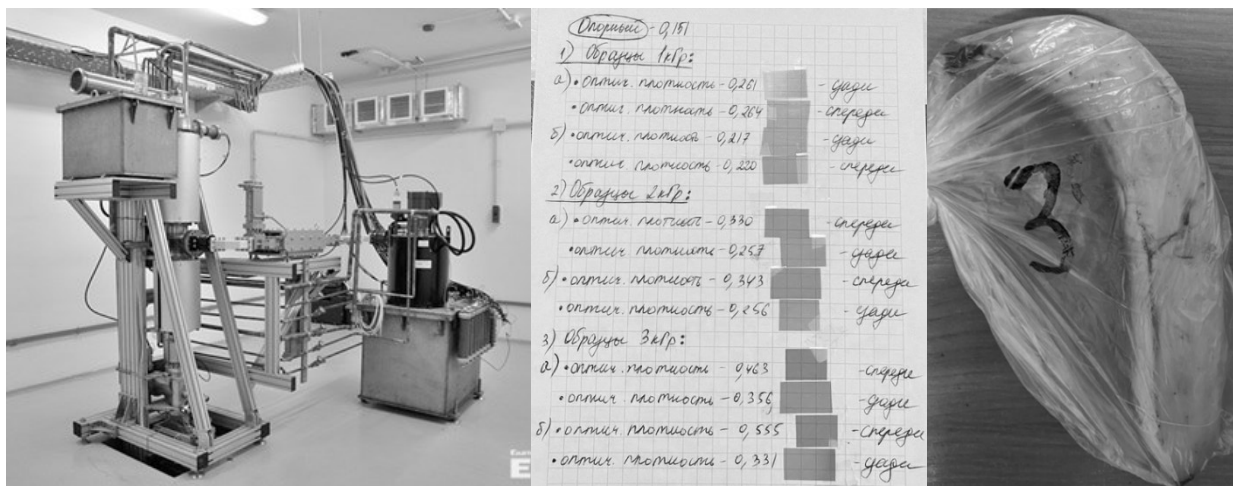 Опорный - 0,151
1) Образцы 1кГр:
а) • оптич. плотность - 0,261 - сзади
• оптич. плотность - 0,264 - спереди
б) • оптич. плотность - 0,217 - сзади
• оптич. плотность - 0,220 - спереди
2) Образцы 2кГр:
а) • оптич. плотность - 0,330 - спереди
• оптич. плотность - 0,257 - сзади
б) • оптич. плотность - 0,343 - спереди
• оптич. плотность - 0,256 - сзади
3) Образцы 3кГр:
а) • оптич. плотность - 0,463 - спереди
• оптич. плотность - 0,356 - сзади
б) • оптич. плотность - 0,555 - спереди
• оптич. плотность - 0,331 - сзади
3